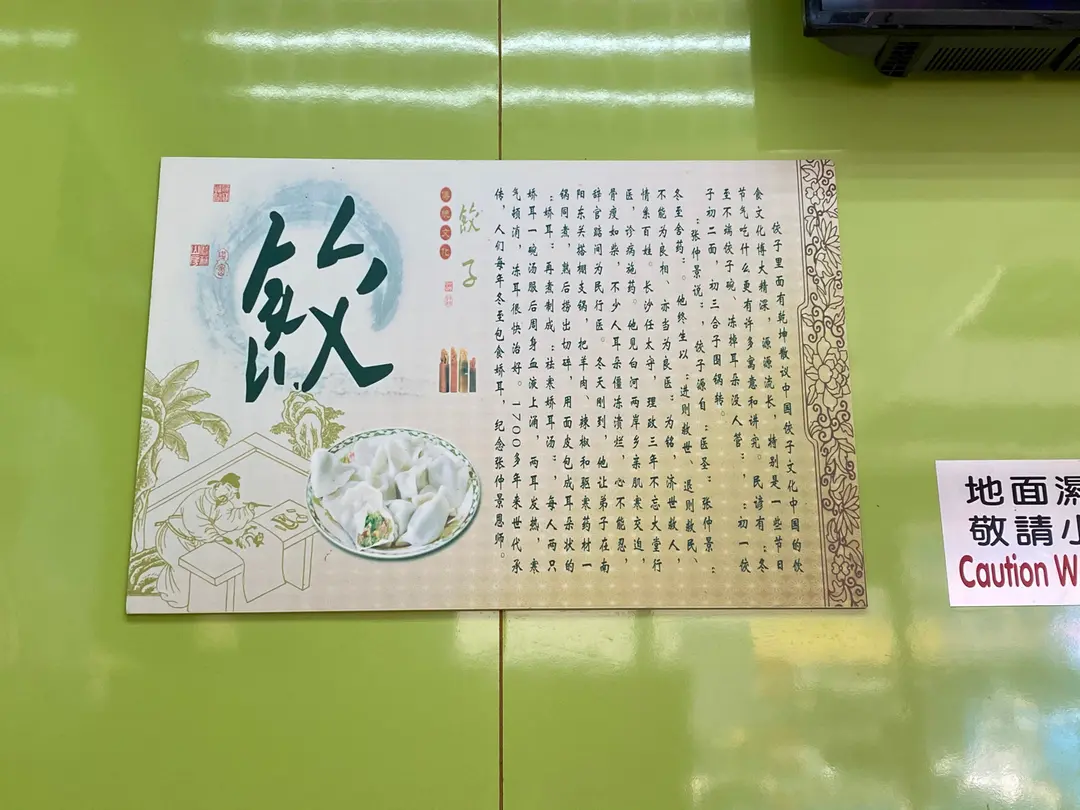 餃
傳統文化
饺子
饺子里面有乾坤散议中国饺子文化中国的饮
食文化博大精深，源源流长，特别是一些节日
节气吃什么更有许多寓意和讲究。民谚有：冬
至不端饺子碗、冻掉耳朵没人管：，：初一饺
子初二面，初三合子围锅转。
：张仲景说：，饺子源自：医圣：张仲景：
冬至舍药：。他终生以：进则救世、退则救民、
不能为良相、亦当为良医：为铭，济世救人，
情系百姓。长沙任太守，理政三年不忘大堂行
医，诊病施药。他见白河两岸乡亲肌寒交迫，
骨瘦如柴，不少人耳朵僵冻溃烂，心不能忍，
辞官踮间为民行医。冬天刚到，他让弟子在南
阳东关搭棚支锅，把羊肉、辣椒和驱寒药材一
锅同煮，熟后捞出切碎，用面皮包成耳朵状的
：娇耳：再煮制成：祛寒娇耳汤：，每人两只
娇耳一碗汤服后周身血液上涌，两耳发热，寒
气顿消，冻耳很快治好。1700多年来世代承
传，人们每年冬至包食娇耳，纪念张仲景恩师。
地面濕
敬請小
Caution W